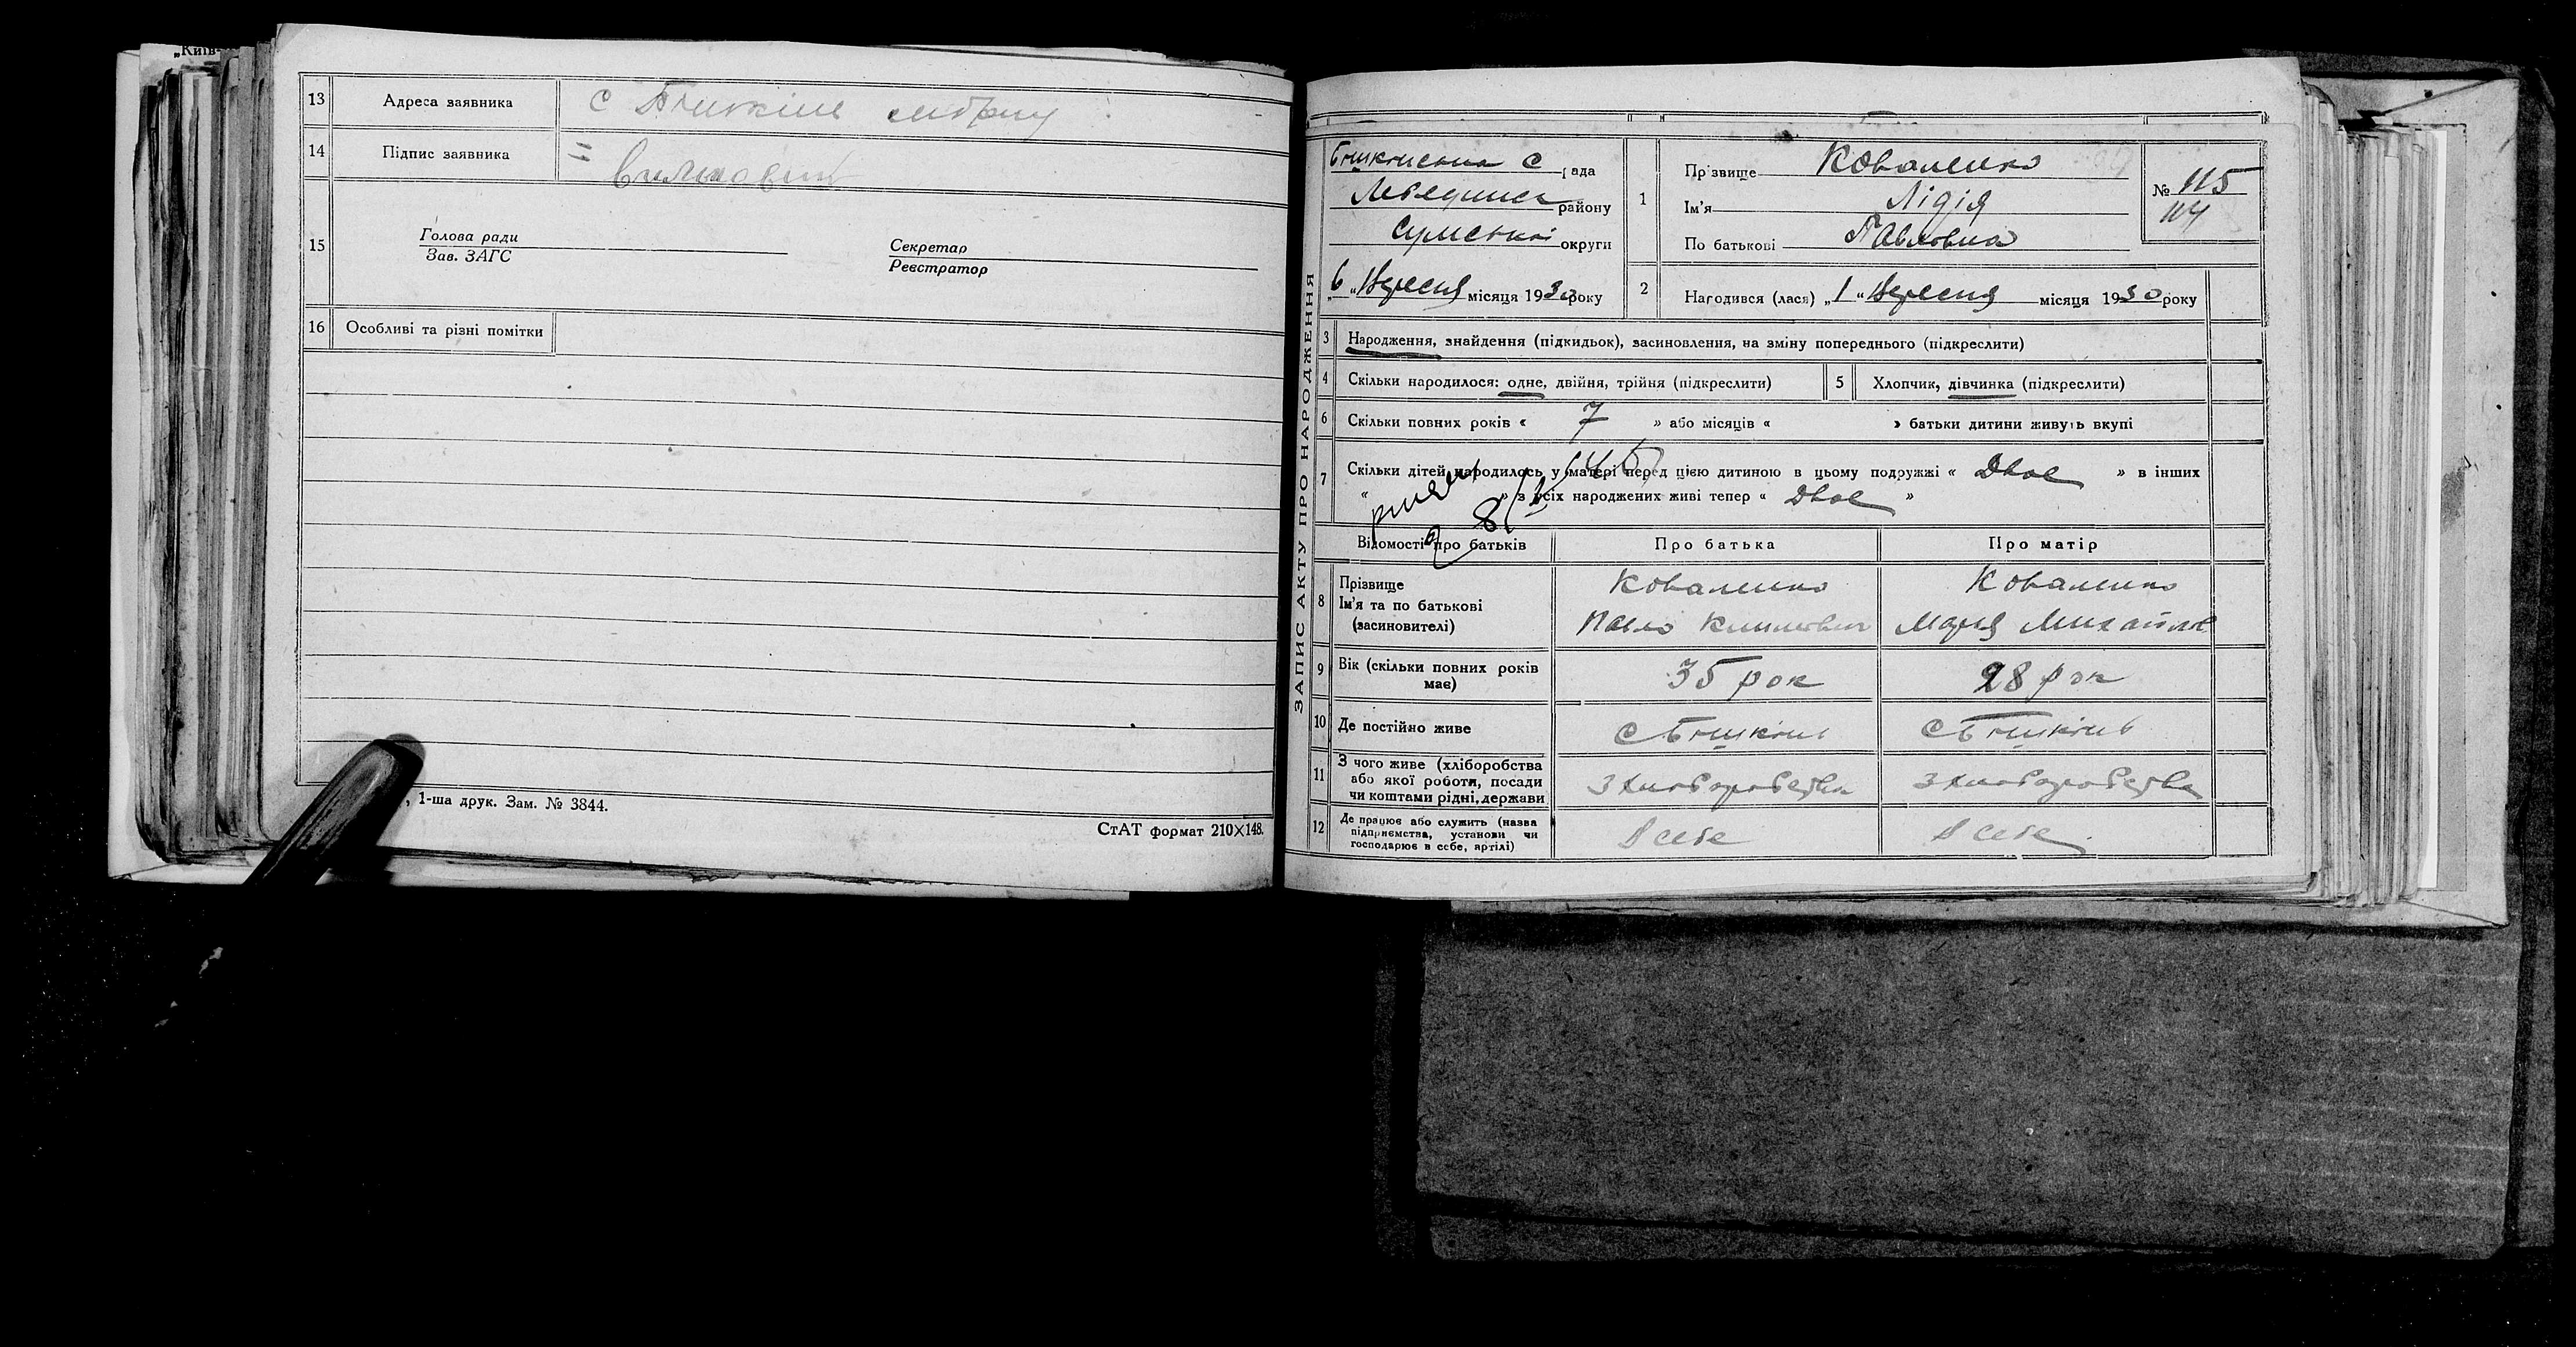 „Київ
13 Адреса заявника с Бишкінь
14 Підпис заявника
15 Голова ради
Зав. ЗАГС
Секретар
Реєстратор
16 Особливі та різні помітки
, 1-ша друк. Зам. № 3844.
СтАТ формат 210×148.
ЗАПИС АКТУ ПРО НАРОДЖЕННЯ
Бишкінська с рада
Лебединск району
Сумської округи
„6“ Вересня місяця 1930 року
1 Прізвище Коваленко
Ім'я Лідія
По батькові Павловна
№ 115
114
2 Народився (лася) „1“ Вересня місяця 1930 року
3 Народження, знайдення (підкидьок), засиновлення, на зміну попереднього (підкреслити)
4 Скільки народилося: одне, двійня, трійня (підкреслити) 5 Хлопчик, дівчинка (підкреслити)
6 Скільки повних років « 7 » або місяців « » батьки дитини живуть вкупі
7 Скільки дітей народилось у матері перед цією дитиною в цьому подружжі « Двоє » в інших
« » з усіх народжених живі тепер « Двоє »
Відомості про батьків Про батька Про матір
8 Прізвище Коваленко Коваленко
Ім'я та по батькові
(засиновителі) Павло Климович Марія Михайлов
9 Вік (скільки повних років
має) 35 рок 28 рок
10 Де постійно живе с Бишкінь с Бишкінь
11 З чого живе (хліборобства
або якої роботи, посади
чи коштами рідні, держави з хліборобства з хліборобства
12 Де працює або служить (назва
підприємства, установи чи
господарює в себе, артілі) В себе В себе